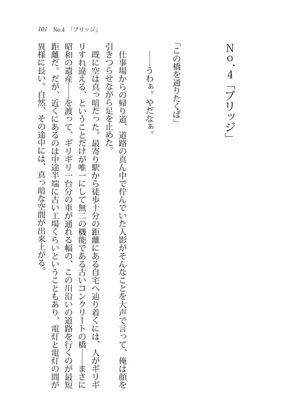 101 No.4 「ブリッジ」
No. 4「ブリッジ」
「この橋を通りたくば」
――うわぁ。やだなぁ。
仕事場からの帰り道、道路の真ん中で佇んでいた人影がそんなことを大声で言って、俺は顔を
引きつらせながら足を止めた。
既に空は真っ暗だった。最寄り駅から徒歩十分の距離にある自宅へ辿り着くには、人がギリギ
リすれ違える、ということだけが唯一にして無二の機能である古いコンクリートの橋――まさに
昭和の遺産――を渡って、ギリギリ一台分の車が通れる幅の、この川沿いの道路を行くのが最短
距離だ。だが、近くにあるのは中途半端に古い工場くらいということもあり、電灯と電灯の間が
異様に長い。自然、その途中には、真っ暗な空間が出来上がる。